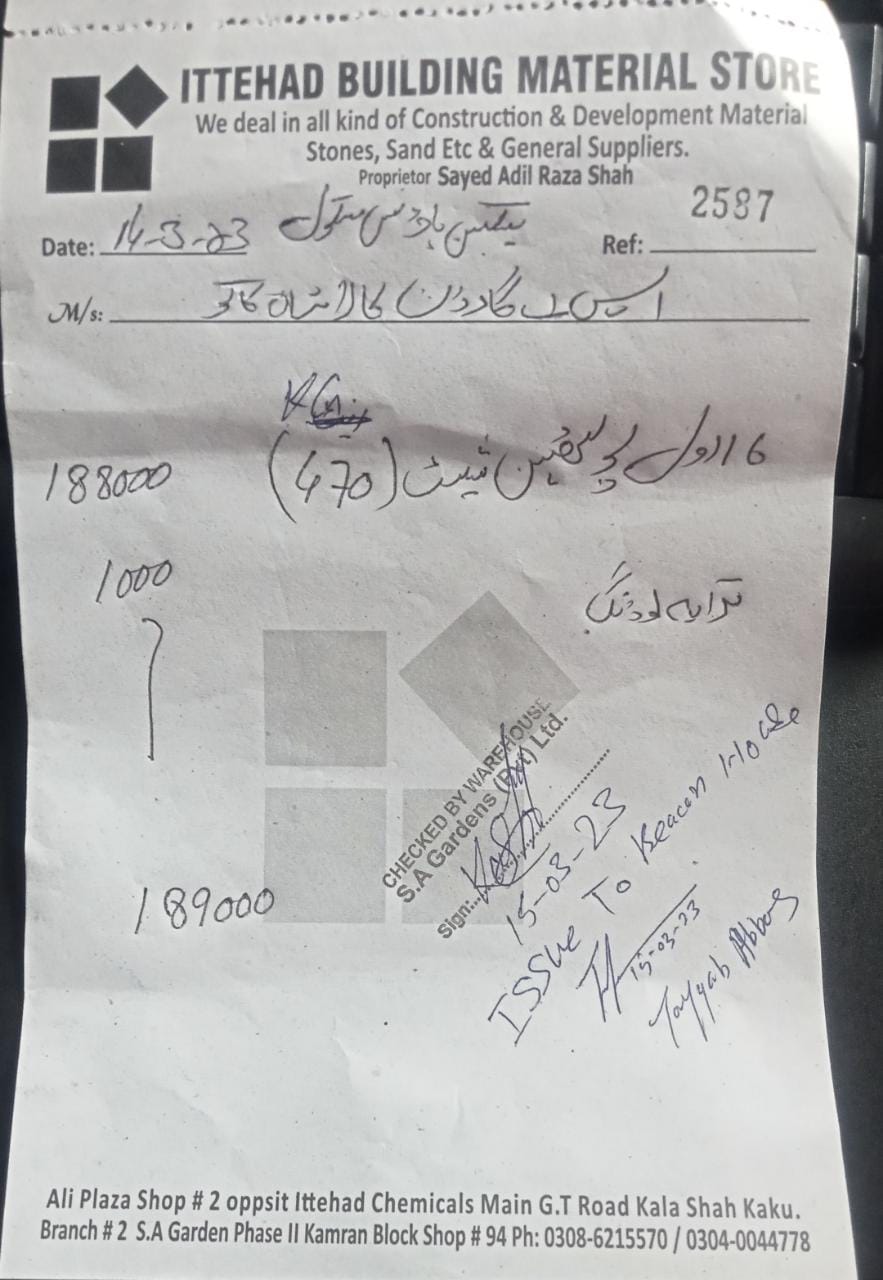 ITTEHAD BUILDING MATERIAL STORE
We deal in all kind of Construction & Development Material
Stones, Sand Etc & General Suppliers.
Proprietor Sayed Adil Raza Shah
2587
Date: 14-3-23 بیکن ہاؤس سکول Ref:
M/s: ایس اے گارڈن کالا شاہ کاکو
KG
188000 (470) شیٹ 16 رول
1000 کرایہ لوڈنگ
CHECKED BY WAREHOUSE
S.A Gardens (Pvt) Ltd.
Sign:
15-03-23
189000
ISSUe To Beacon House
15-03-23
Tayyab Abbas
Ali Plaza Shop # 2 oppsit Ittehad Chemicals Main G.T Road Kala Shah Kaku.
Branch # 2 S.A Garden Phase II Kamran Block Shop # 94 Ph: 0308-6215570 / 0304-0044778